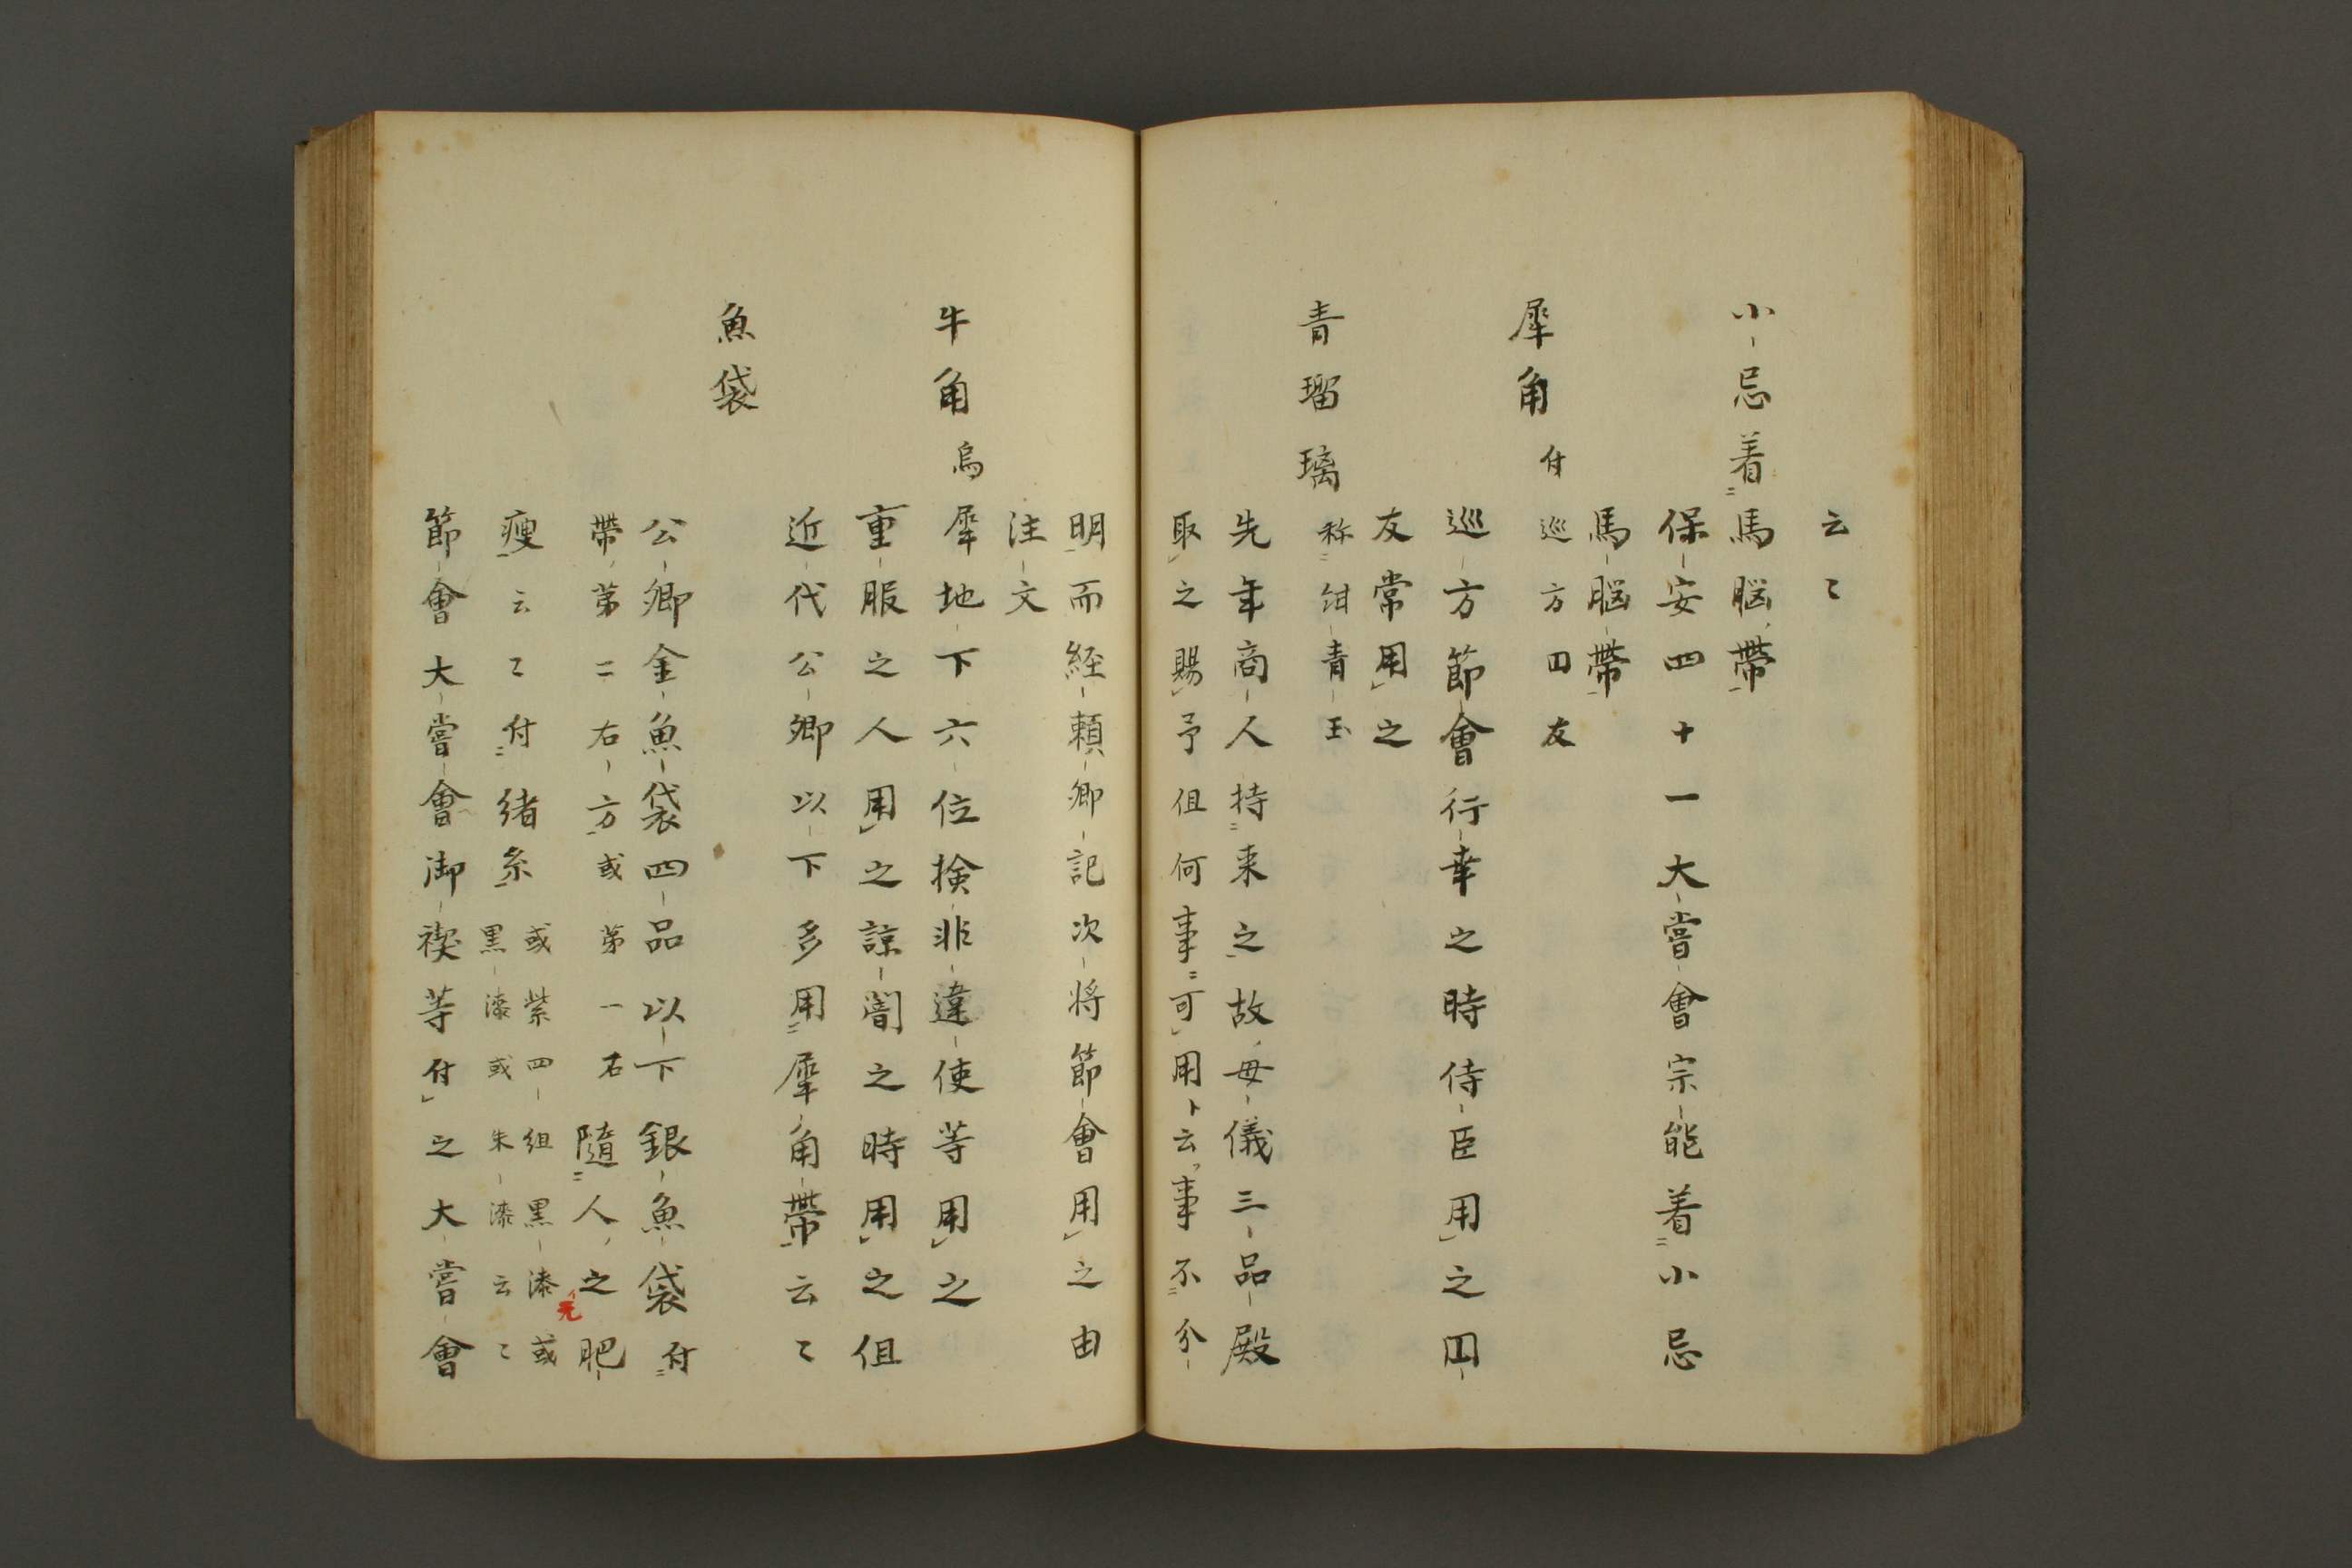 云〻
小忌着馬脳帯
保安四十一大嘗會宗能着小忌
馬脳帯
犀角付巡方囗友
巡方節會行幸之時侍臣用之囗
友常用之
青瑠璃称紺青玉
先年商人持来之故毋儀三品殿
取之賜予但何事可用ト云事不分
明而経頼卿記次将節會用之由
注文
牛角烏犀地下六位検非違使等用之
重服之人用之諒闇之時用之但
近代公卿以下多用犀角帯云〻
魚袋
公卿金魚袋四品以下銀魚袋付
帯第二右方或第一石隨人之肥
イ无
痩云〻付緒糸或紫四組黒漆或
黒漆或朱漆云〻
節會大嘗會御禊等付之大嘗會